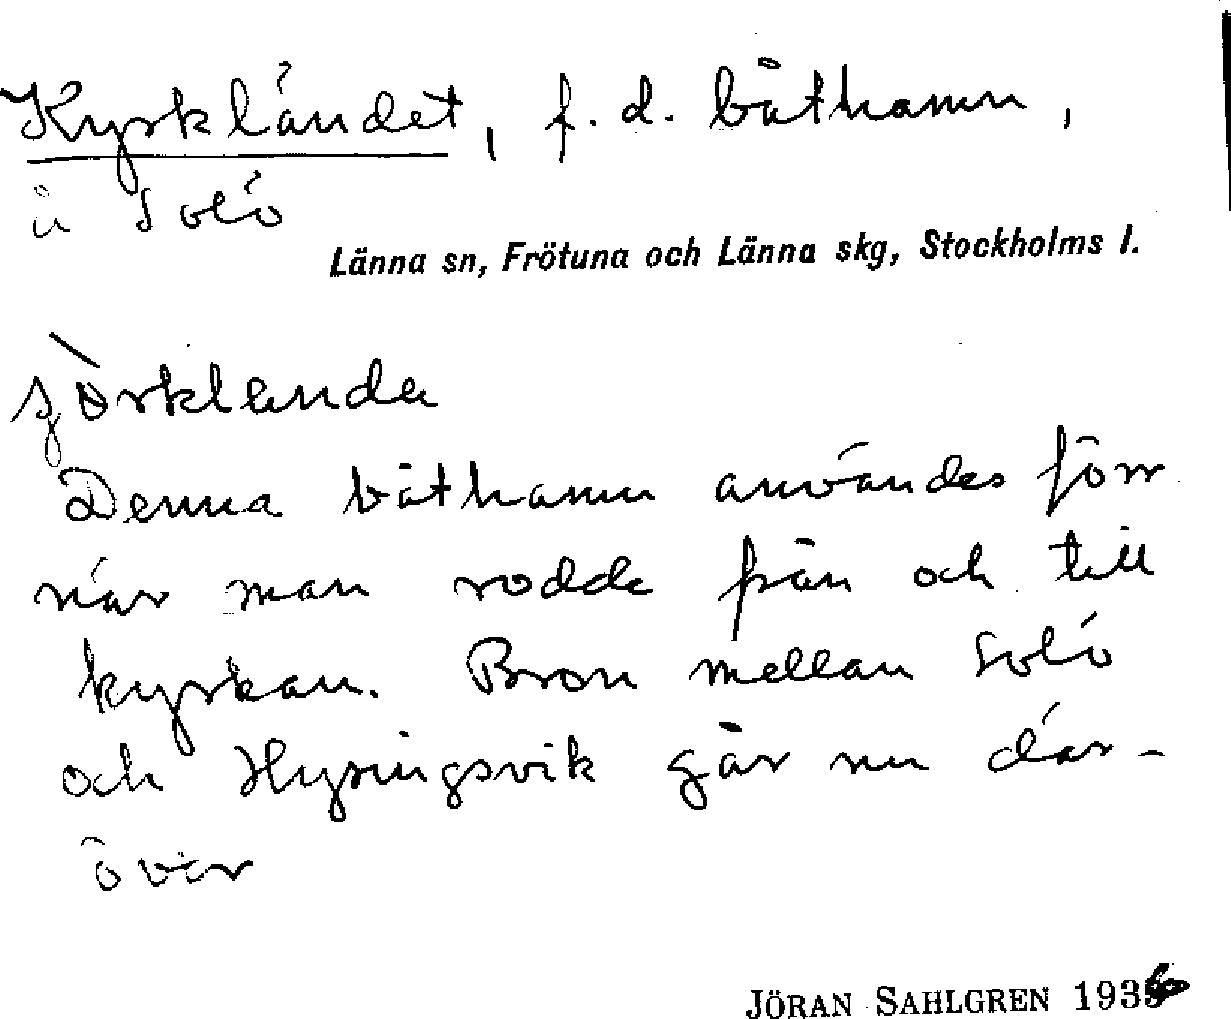 Kyrkländet, f. d. båthamn,
å Solö
Länna sn, Frötuna och Länna skg, Stockholms l.
Denna båthamn användes förr
när man rodde från och till
kyrkan. Bron mellan Solö
och Hysingsvik går nu där-
över
JÖRAN SAHLGREN 1936